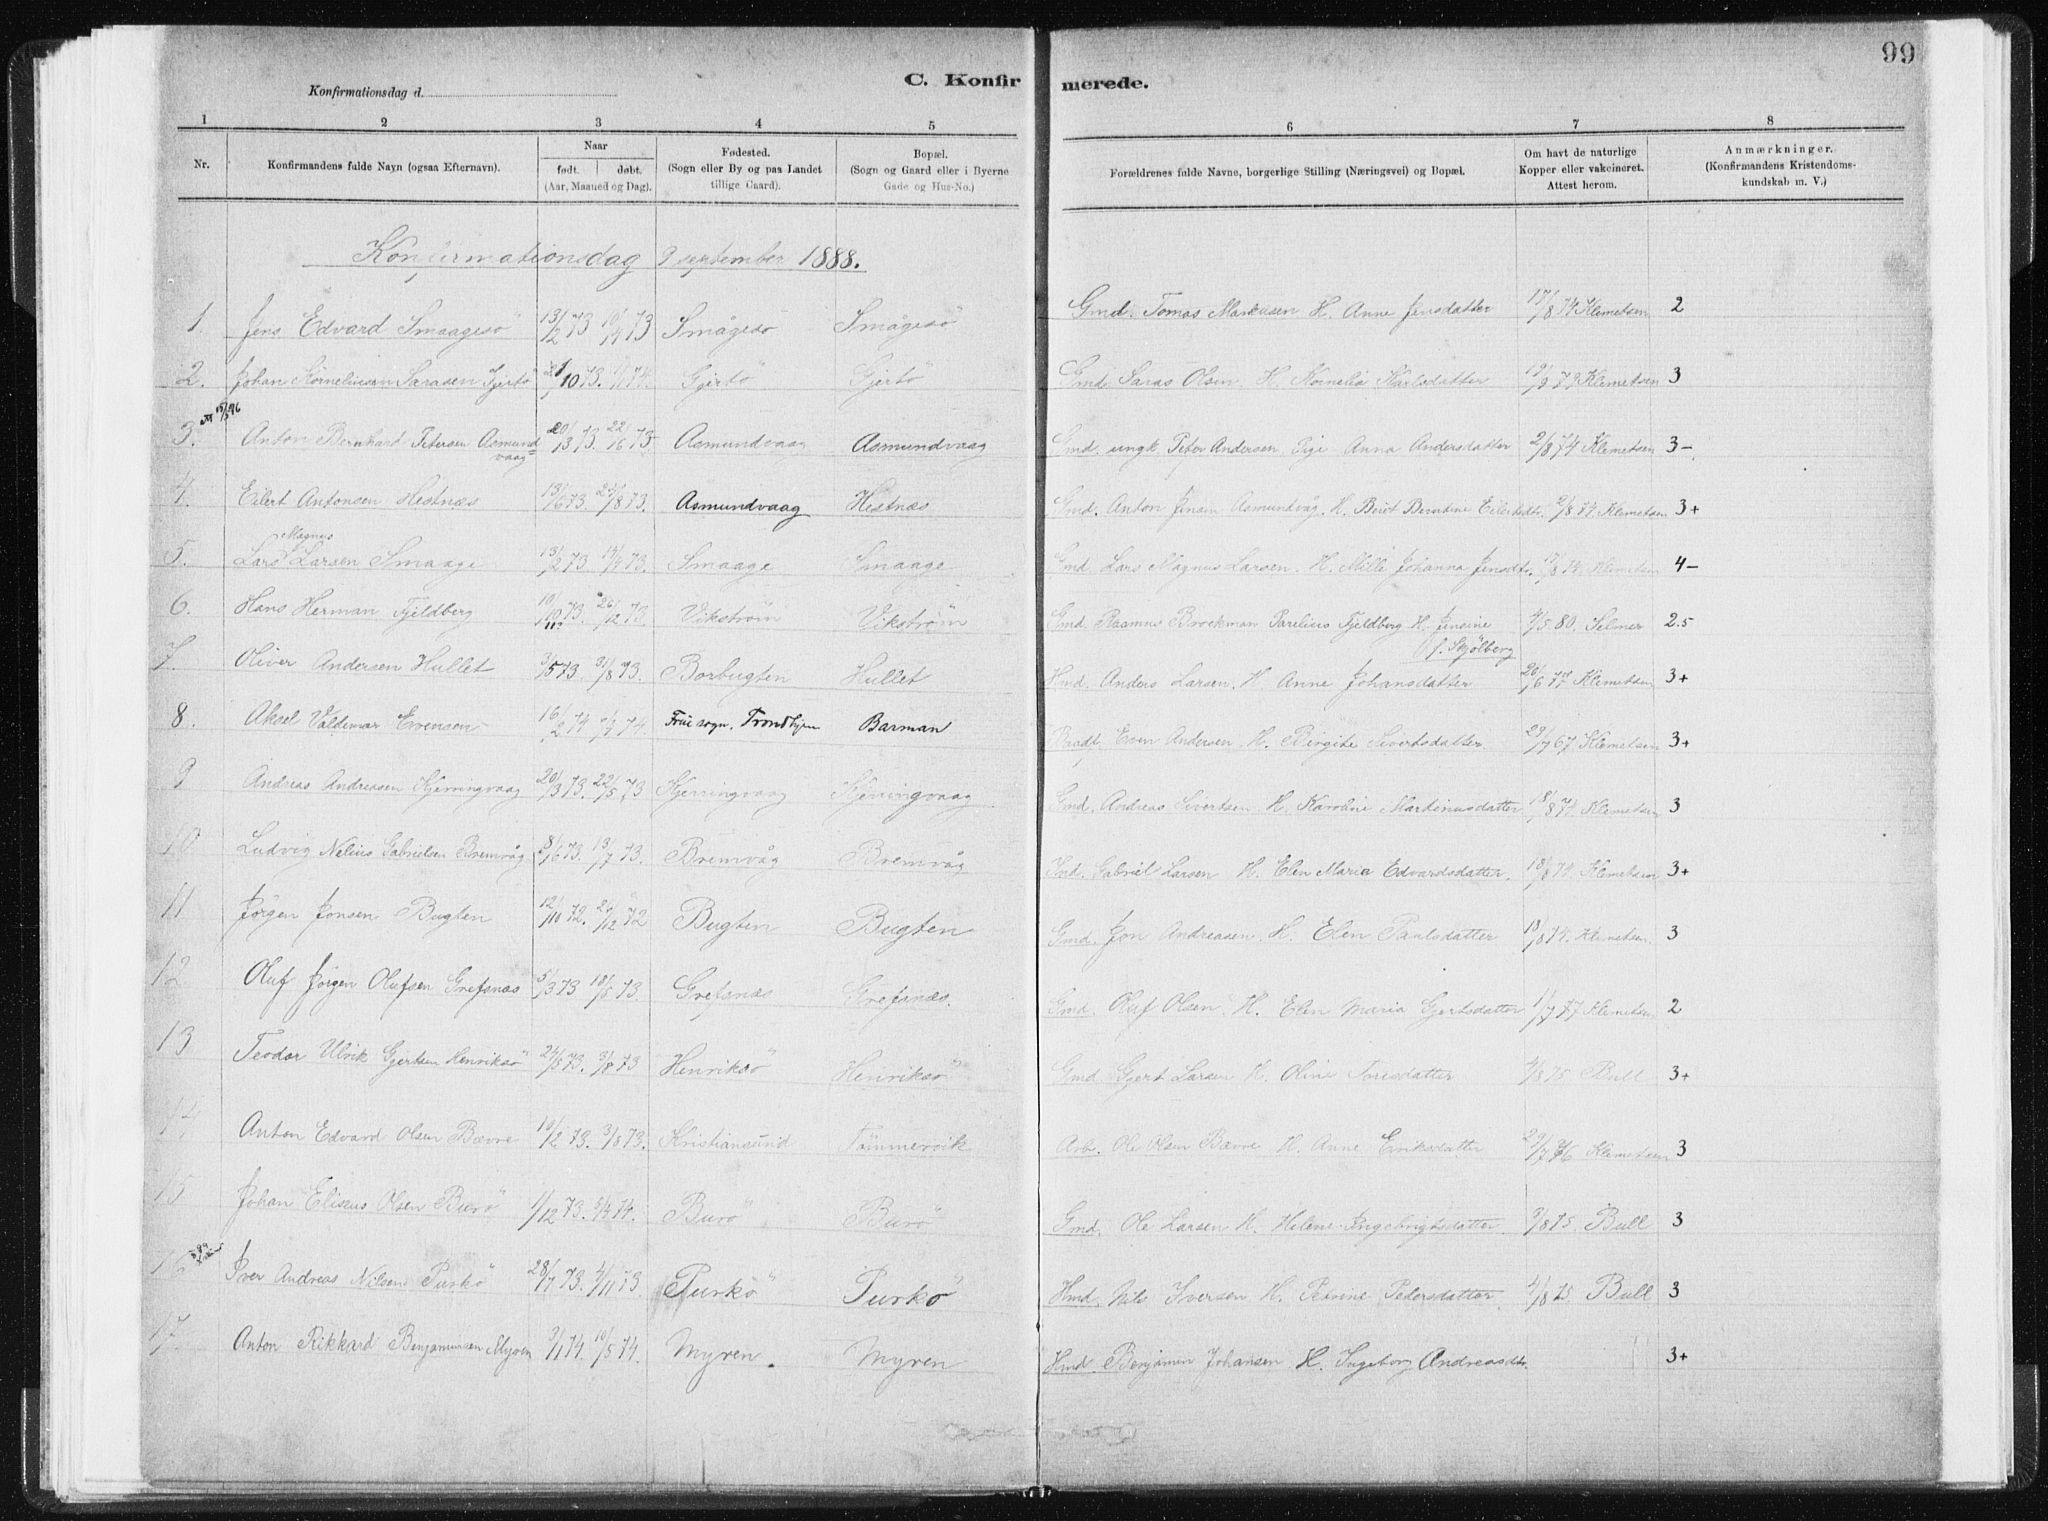 99
C. Konfirmerede.
Konfirmationsdag d.
1 2 3 4 5 6 7 8
Nr. Konfirmandens fulde Navn (ogsaa Efternavn). Naar født. døbt. (Aar, Maaned og Dag). Fødested. (Sogn eller By og paa Landet tillige Gaard). Bopæl. (Sogn og Gaard eller i Byerne Gade og Hus-No.) Forældrenes fulde Navne, borgerlige Stilling (Næringsvei) og Bopæl. Om havt de naturlige Kopper eller vakcineret. Attest herom. Anmærkninger. (Konfirmandens Kristendomskundskab m. V.)
Konfirmationsdag 9 september 1888.
1. Jens Edvard Smaagesö 13/2 73 Smågesö Smågesö Gmd. Tomas Markusen H. Anne Jensdatter 17/8 74 Klemetsen 2
2. Johan Korneliusen Sarasen Gjertö 10 73. Gjertö Gjertö Gmd. Saras Olsen H. Kornelia Karlsdatter Klemetsen 3
3. Anton Bernhard Petersen Asmundvaag Asmundvaag Asmundvaag Gmd. ungk. Peter Andersen Pige Anna Andersdatter 2/8 74 Klemetsen 3-
4. Eilert Antonsen Hestnæs 13/6 73 25/8 73. Asmundvaag Hestnæs Gmd. Anton Jensen Asmundvåg. H. Berit Berntine Eilertsdtr. 2/8 74 Klemetsen 3+
5. Lars Magnus Larsen Smaage 13/2 73. 14/4 73. Smaage Smaage Gmd. Lars Magnus Larsen. H. Milli Johanna Jensdtr. Klemetsen 4-
6. Hans Herman Fjeldberg 10/10 73. 26/12 73. Vikström Vikström Gmd. Rasmus Brockman Parelius Fjeldberg H. Jensine f. Skjölberg 4/5 80. Selmer 2.5
7. Oliver Andersen Hullet 3/5 73. 31/8 73. Borbugten Hullet Hmd. Anders Larsen. H. Anne Johansdatter 26/6 77 Klemetsen 3+
8. Aksel Valdemar Evensen 16/2 74 Frue sogn. Trondhjem Barman Even Andersen. H. Birgite Sivertsdatter. 29/7 67 Klemetsen 3+
9 Andreas Andreasen Kjerringvaag 20/3 73. 22/5 73 Kjerringvaag Kjerringvaag Gmd. Andreas Sivertsen. H. Karoline Martinusdatter 18/8 74 Klemetsen 3
10 Ludvig Nelius Gabrielsen Bremvåg 8/6 73. 13/7 73. Bremvåg Bremvåg Gmd. Gabriel Larsen H. Elen Marie Edvardsdatter. 18/8 74. Klemetsen 3+
11 Jörgen Jonsen Bugten 12/10 72. 26/12 72 Bugten Bugten Gmd. Jon Andreasen. H. Elen Paulsdatter 18/8 74. Klemetsen. 3
12 Oluf Jörgen Olufsen Grefsnæs 5/3 73 18/5 73. Grefsnæs Grefsnæs. Gmd. Oluf Olsen. H. Elen Maria Gjertsdatter 1/7 77 Klemetsen 2
13 Teodor Ulrik Gjertsen Henriksö 24/5 73. 3/8 73 Henriksö Henriksö Gmd. Gjert Larsen H. Oline Toresdatter 4/8 75 Bull 3+
14 Anton Edvard Olsen Bævre 10/2 73. 3/8 73. Kristiansund Tömmervik Arb. Ole Olsen Bævre H. Anne Eriksdatter 29/7 76 Klemetsen 3
15 Johan Eliseus Olsen Burö 1/12 73. 5/4 74. Burö Burö Gmd. Ole Larsen H. Helene Ingebrigtsdatter 9/8 75. Bull 3
16 Iver Andreas Nilsen Purkö 28/7 73. 2/11 73 Purkö Purkö Hmd. Nils Iversen H. Petrine Petersdatter. 4/8 75 Bull 3
17. Anton Rikkard Benjaminsen Myren 3/1 74. 10/5 74. Myren. Myren Hmd. Benjamin Johansen H. Ingeborg Andreasdtr. 3+